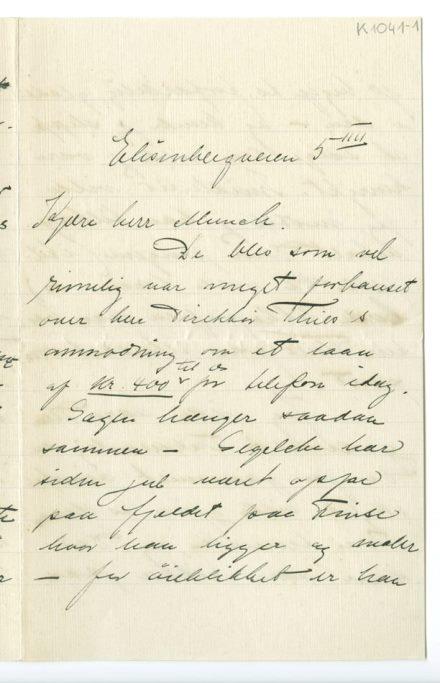 K1041-1
Elisenbergveien 5 III
Kjære herr Munch.
De blev som vel
rimelig var meget forbauset
over herr Direktør Thiis's
anmodning om et laan
af Kr. 400 til os pr telefon idag.
Sagen hænger saadan
sammen —
har
siden jul været oppe
paa fjeldet paa Finse
hvor han ligger og maler
— for øieblikket er han